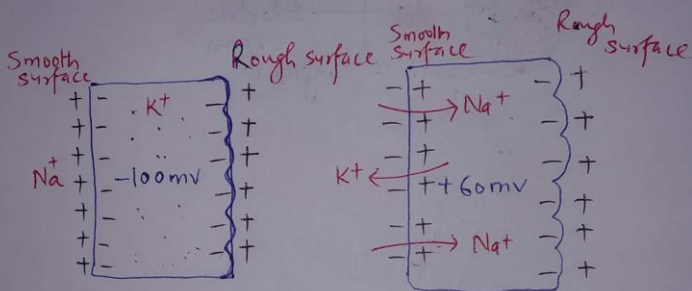 Smooth
surface
Rough surface
K+
Na+
-100mv
Smooth
surface
Rough
surface
Na+
K+
+60mv
Na+